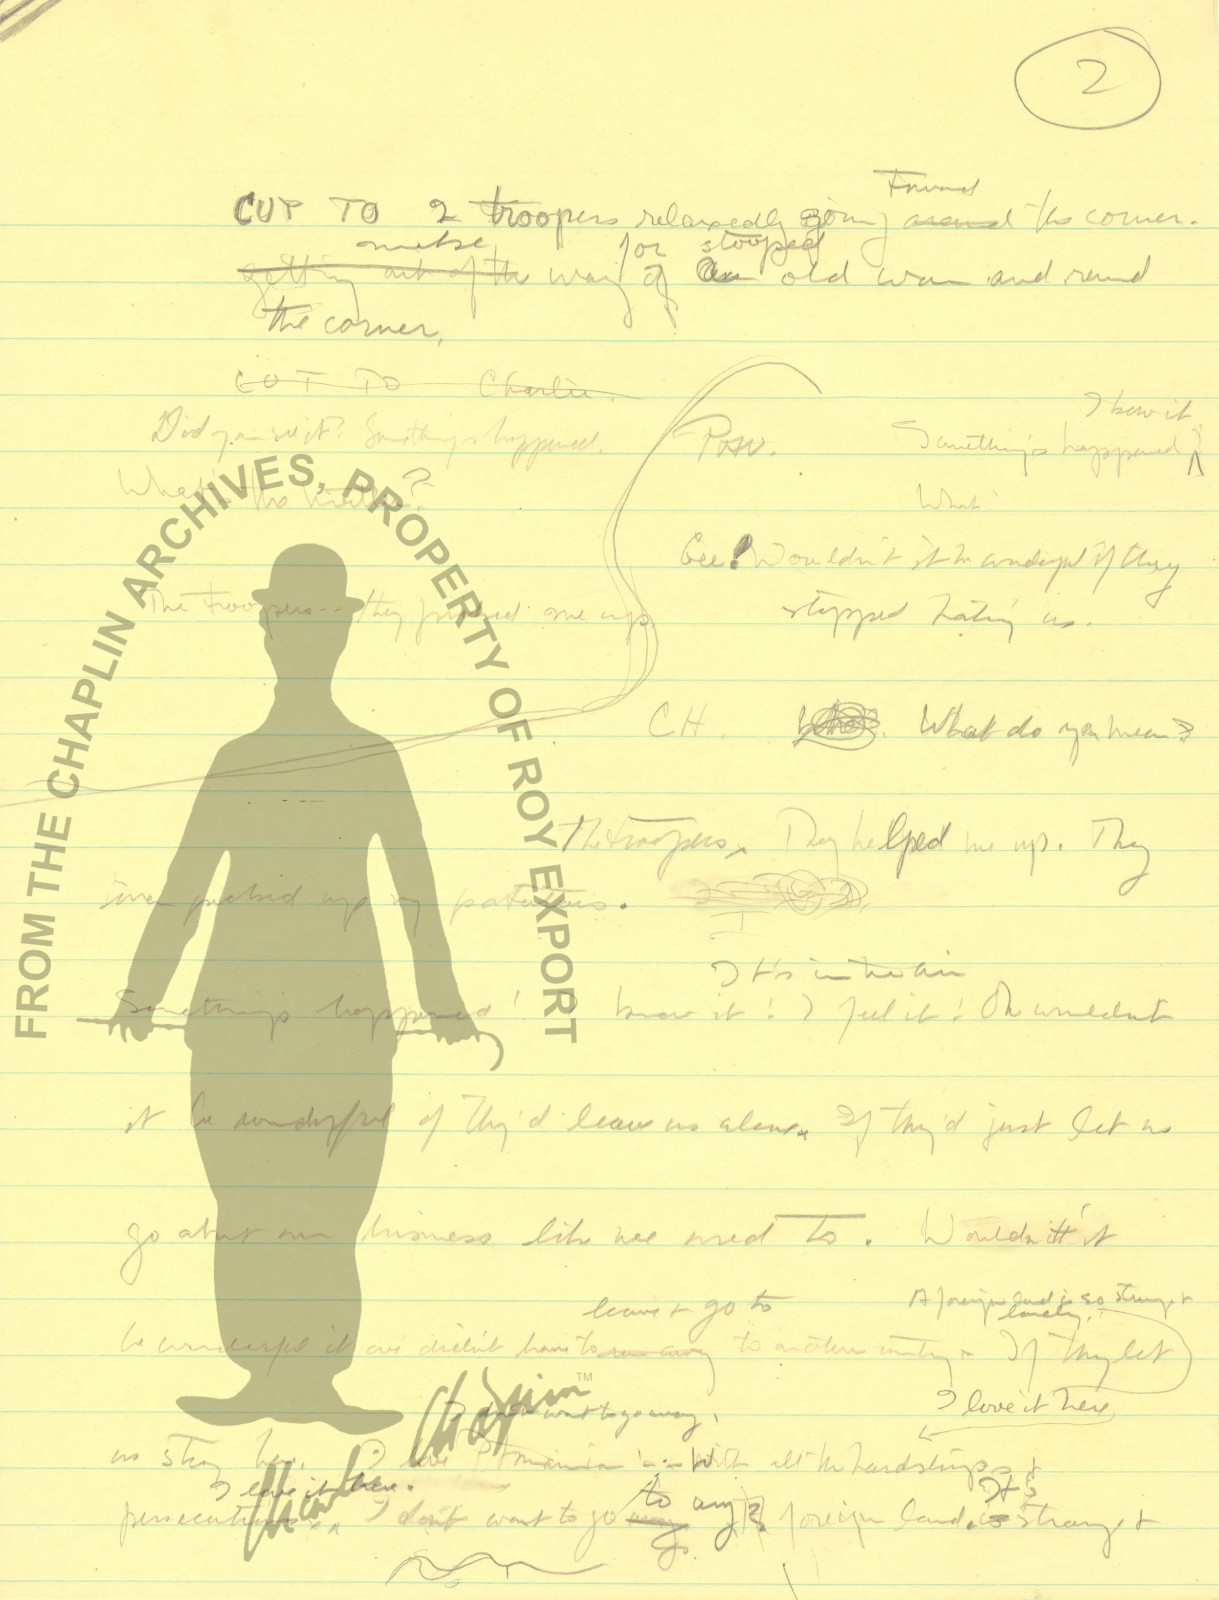 2
Around
CUT TO 2 troopers relaxedly going around the corner.
make for stooped
getting out of the way of an old woman and round
the corner,
CUT TO Charlie.
I know it
Did you see it? Something's happened. Paw. Something's happened
What's the What
Gee! Wouldn't it be wonderful if they
The troopers -- they picked me up stopped hating us.
CH. What do you mean?
The troopers, They helped me up. They
even picked up my potatoes.
It's in the air
Something's happened! I know it! I feel it! Oh wouldn't
it be wonderful if they'd leave us alone. If they'd just let us
go about our business like we used to. Wouldn't it
leave & go to A foreign land is so strange &
lonely.
be wonderful if we didn't have to run away to another country. If they let
I don't want to go away. I love it here
us stay here. I love Ptomania -- With all the hardships &
I love it here. to any It's
persecution.. I don't want to go away foreign land. is strange &
FROM THE CHAPLIN ARCHIVES, PROPERTY OF ROY EXPORT
Charlie Chaplin TM